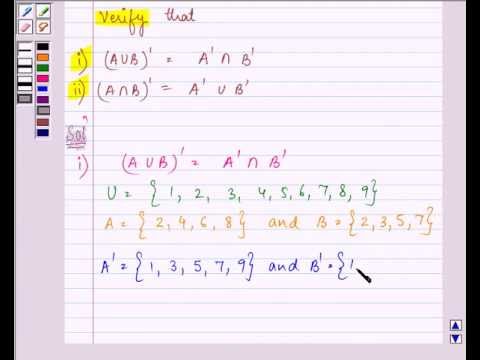 Verify that
i) (A∪B)' = A' ∩ B'
ii) (A∩B)' = A' ∪ B'
Sol^n
i) (A ∪ B)' = A' ∩ B'
U = { 1, 2, 3, 4, 5, 6, 7, 8, 9}
A = { 2, 4, 6, 8} and B = {2, 3, 5, 7}
A' = { 1, 3, 5, 7, 9} and B' = { 1,